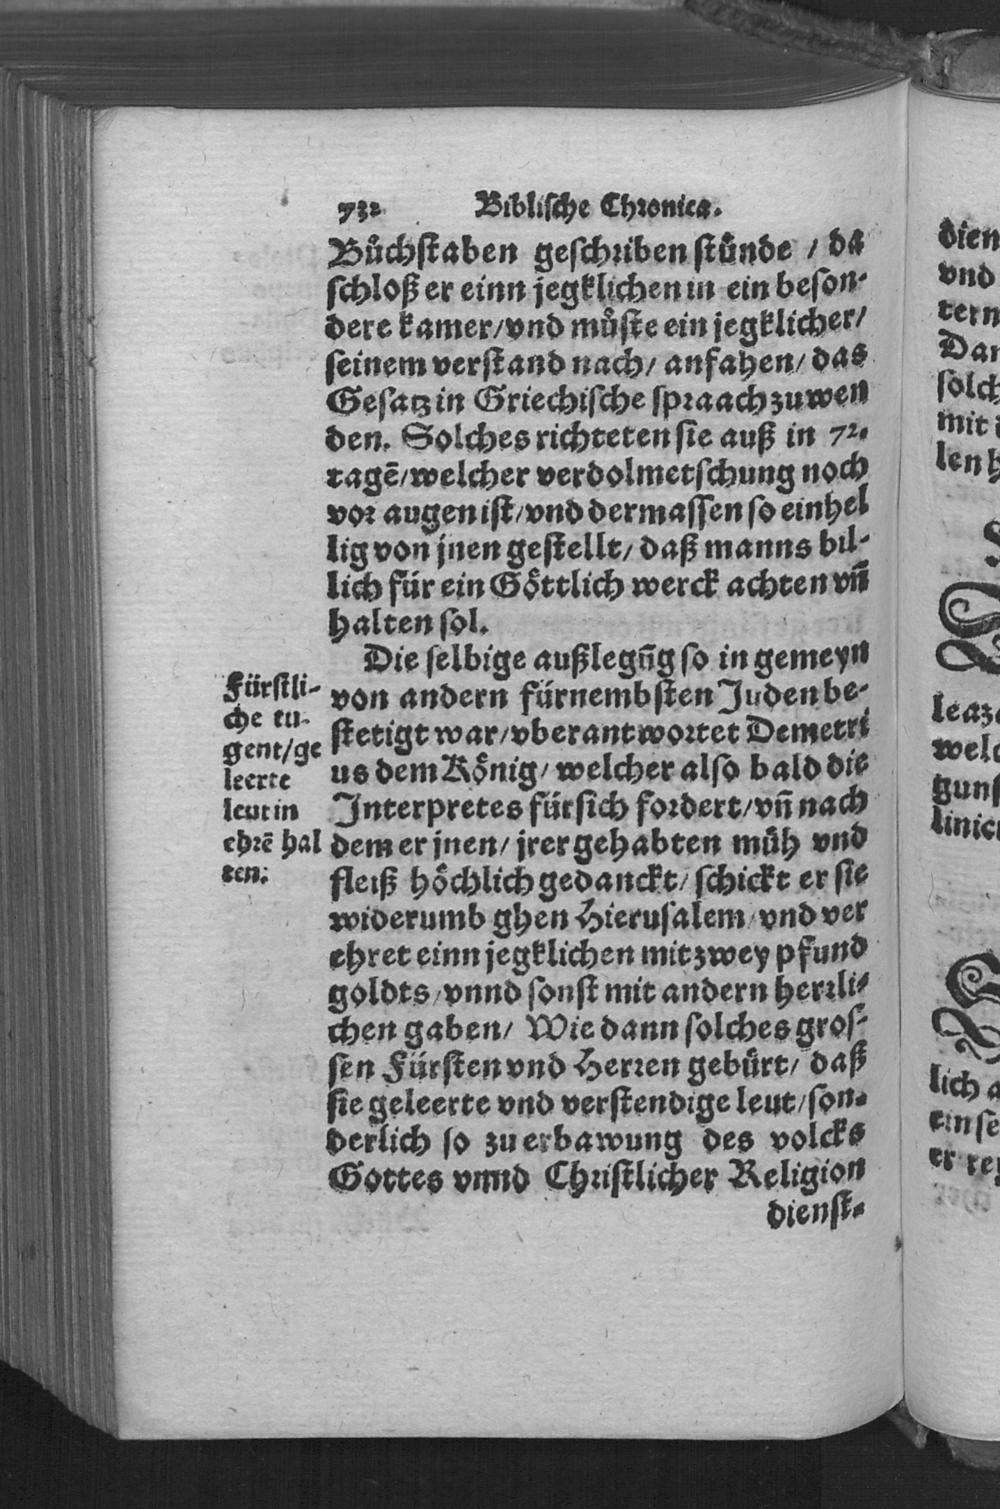 732 Biblische Chronica.
Bůchstaben geschriben stünde / da
schloß er einn jegklichen in ein beson-
dere kamer/vnd můste ein jegklicher/
seinem verstand nach/ anfahen/ das
Gesatz in Griechische spraach zuwen
den. Solches richteten sie auß in 72.
tagē/welcher verdolmetschung noch
vor augen ist/vnd dermassen so einhel
lig von jnen gestellt/ daß manns bil-
lich für ein Göttlich werck achten vñ
halten sol.
Die selbige außlegūg so in gemeyn
von andern fürnembsten Juden be-
stetigt war/vberantwortet Demetri
us dem König/ welcher also bald die
Interpretes für sich fordert/vñ nach
dem er jnen/ jrer gehabten müh vnd
fleiß höchlich gedanckt/ schickt er sie
widerumb ghen Hierusalem/vnd ver
ehret einn jegklichen mit zwey pfund
goldts/vnnd sonst mit andern herrli-
chen gaben/ Wie dann solches gros-
sen Fürsten vnd Herren gebürt/ daß
sie geleerte vnd verstendige leut/son-
derlich so zu erbawung des volcks
Gottes vnnd Christlicher Religion
dienst-
Fürstli-
che tu-
gent/ge
leerte
leut in
ehrē hal
ten.
dien
vnd
tern
Dar
solch
mit
len h
leaz
welc
guns
linic
lich a
ein se
er re